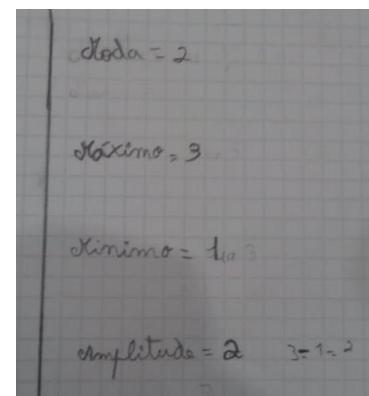 Moda = 2
Máximo = 3
Minimo = 1
Amplitude = 2 3-1=2